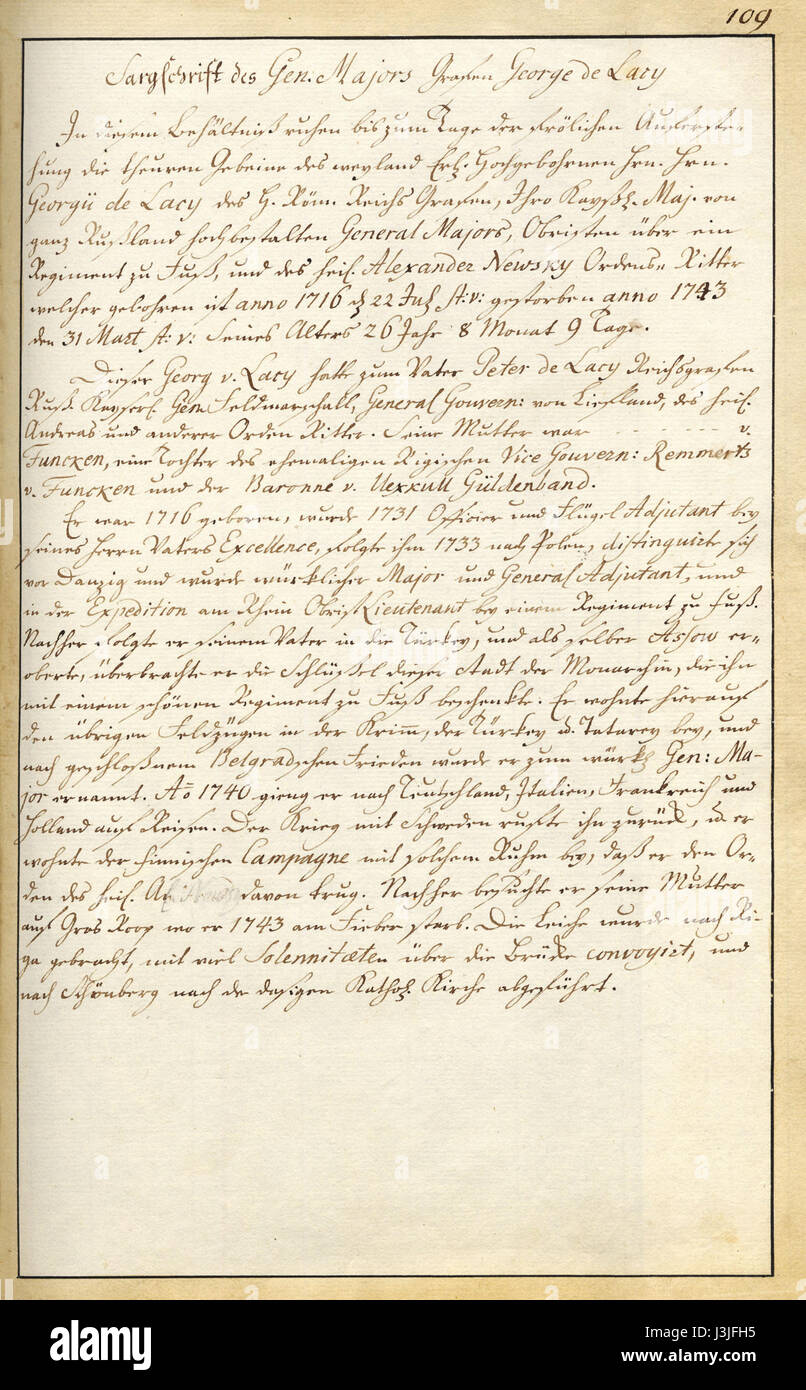 109
Sargschrift des Gen. Majors Grafen George de Lacy
In diesem Behältniß ruhen bis zum Tage der frölichen Auferste-
hung die theuren Gebeine des weyland Erl. Hochgebohrnen Hrn. Hrn.
Georgii de Lacy des H. Röm. Reichs Grafen, Ihro Kayßl. Maj. von
ganz Rußland hochbestalten General Majors, Obristen über ein
Regiment zu Fuß, und des heil. Alexander Newsky Ordens„ Ritter
welcher gebohren ist anno 1716 d 22 Jul st: v: gestorben anno 1743
den 31 Mart st: v: seines Alters 26 Jahr 8 Monat 9 Tage.
Dieser Georg v. Lacy hatte zum Vater Peter de Lacy Reichsgrafen
Ruß. Kayserl. Gen. Feldmarschall, General Gouvern: von Liefland, des heil.
Andreas und anderer Orden Ritter. Seine Mutter war - - - - - - v.
Funcken, eine Tochter des ehemaligen Rigischen Vice Gouvern: Remmerts
v. Funcken und der Baronne v. Uexkull Güldenband.
Er war 1716 geboren, wurde 1731 Officier und Flügel Adjutant bey
seines Herrn Vaters Excellence, folgte ihm 1733 nach Polen, distinguirte sich
vor Danzig und wurde würklicher Major und General Adjutant, und
in der Expedition am Rhein Obrist Lieutenant bey einem Regiment zu Fuß.
Nachher folgte er seinem Vater in die Türkey, und als selber Assow er-
oberte, überbrachte er die Schlüßel dieser Stadt der Monarchin, die ihn
mit einem schönen Regiment zu Fuß beschenkte. Er wohnte hierauf
den übrigen Feldzügen in der Krimm, der Türkey u. Tatarey bey, und
nach geschloßnem Belgradschen Frieden wurde er zum würkl Gen: Ma-
jor ernannt. Ao 1740 gieng er nach Teutschland, Italien, Frankreich und
Holland auf Reisen. Der Krieg mit Schweden rufte ihn zurück, u. er
wohnte der finnischen Campagne mit solchem Ruhm bey, daß er den Or-
den des heil. davon trug. Nachher besuchte er seine Mutter
auf Gros Roop wo er 1743 am Fieber starb. Die Leiche wurde nach Ri-
ga gebracht, mit viel Solennitæten über die Brücke convoyirt, und
nach Schönberg nach der dasigen Kathol. Kirche abgeführt.
alamy stock photo
H3JFH5
www.alamy.com